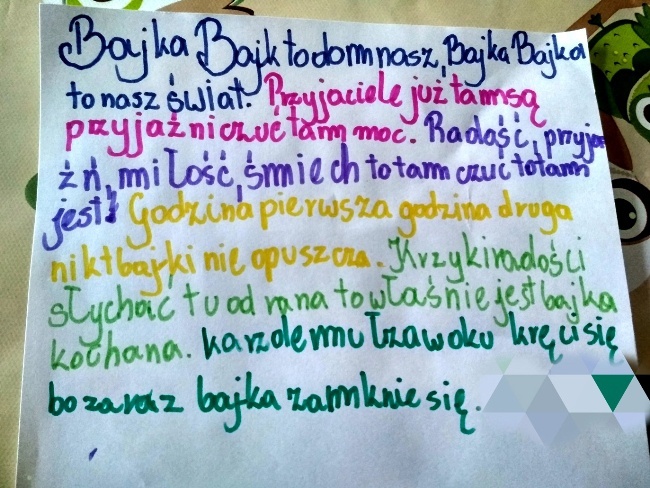 Bajka Bajk to dom nasz, Bajka Bajka
to nasz świat. Przyjaciele już tam są
przyjaźni czuć tam moc. Radość, przyja
źń, miłość, śmiech to tam czuć to tam
jest! Godzina pierwsza godzina druga
nikt bajki nie opuszcza. Krzyki radości
słychać tu od rana to właśnie jest bajka
kochana. karzdemu łza w oku kręci się
bo zaraz bajka zamknie się.